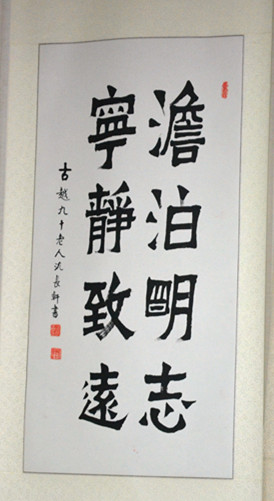 澹泊明志
寧静致遠
古越九十老人沈長軒書